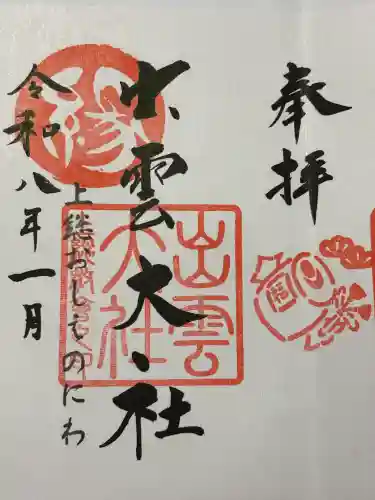 奉拝
出雲大社
出雲
大社
上総おしそのにわ
令和八年一月